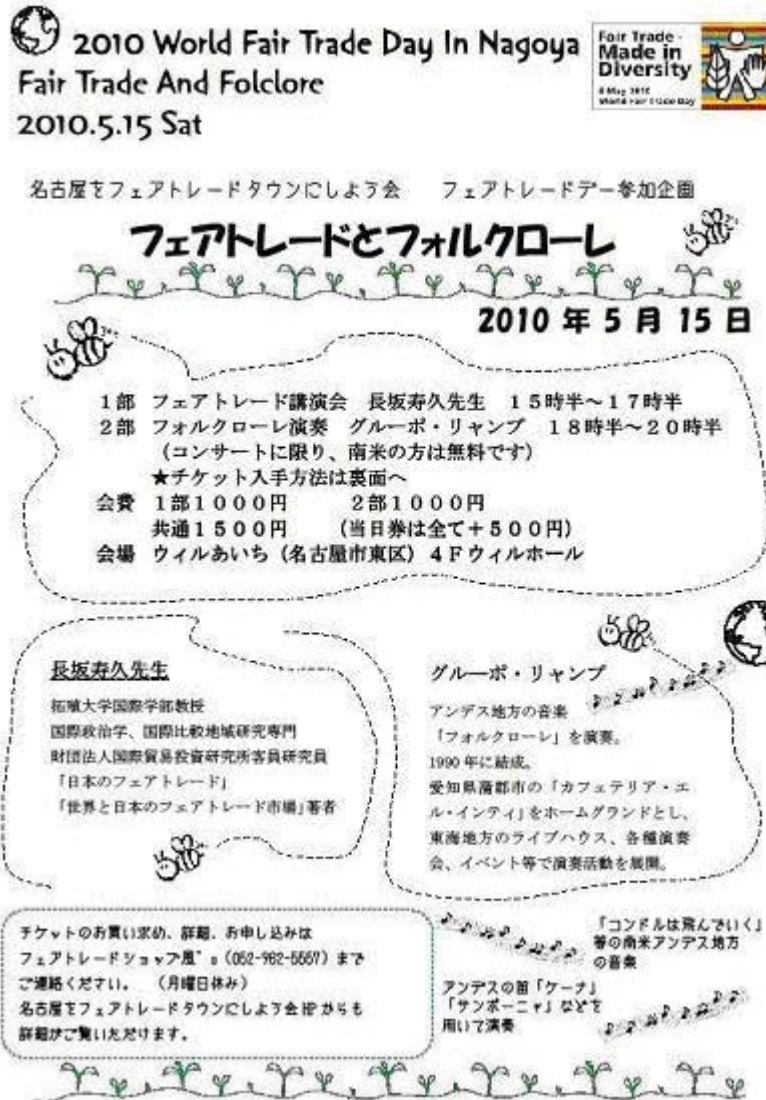 2010 World Fair Trade Day In Nagoya
Fair Trade And Folclore
2010.5.15 Sat
Fair Trade -
Made in
Diversity
8 May 2010
World Fair Trade Day
名古屋をフェアトレードタウンにしよう会　フェアトレードデー参加企画
フェアトレードとフォルクローレ
2010 年 5 月 15 日
1部 フェアトレード講演会 長坂寿久先生 15時半~17時半
2部 フォルクローレ演奏 グルーポ・リャンプ 18時半~20時半
(コンサートに限り、南米の方は無料です)
★チケット入手方法は裏面へ
会費 1部1000円 2部1000円
共通1500円 (当日券は全て+500円)
会場 ウィルあいち (名古屋市東区) 4Fウィルホール
長坂寿久先生
拓殖大学国際学部教授
国際政治学、国際比較地域研究専門
財団法人国際貿易投資研究所客員研究員
「日本のフェアトレード」
「世界と日本のフェアトレード市場」著者
グルーポ・リャンプ
アンデス地方の音楽
「フォルクローレ」を演奏。
1990 年に結成。
愛知県蒲郡市の「カフェテリア・エ
ル・インティ」をホームグランドとし、
東海地方のライブハウス、各種演奏
会、イベント等で演奏活動を展開。
チケットのお買い求め、詳細、お申し込みは
フェアトレードショップ風"s (052-962-5557) まで
ご連絡ください。 (月曜日休み)
名古屋をフェアトレードタウンにしよう会 HP からも
詳細がご覧いただけます。
「コンドルは飛んでいく」
等の南米アンデス地方
の音楽
アンデスの笛「ケーナ」
「サンポーニャ」などを
用いて演奏